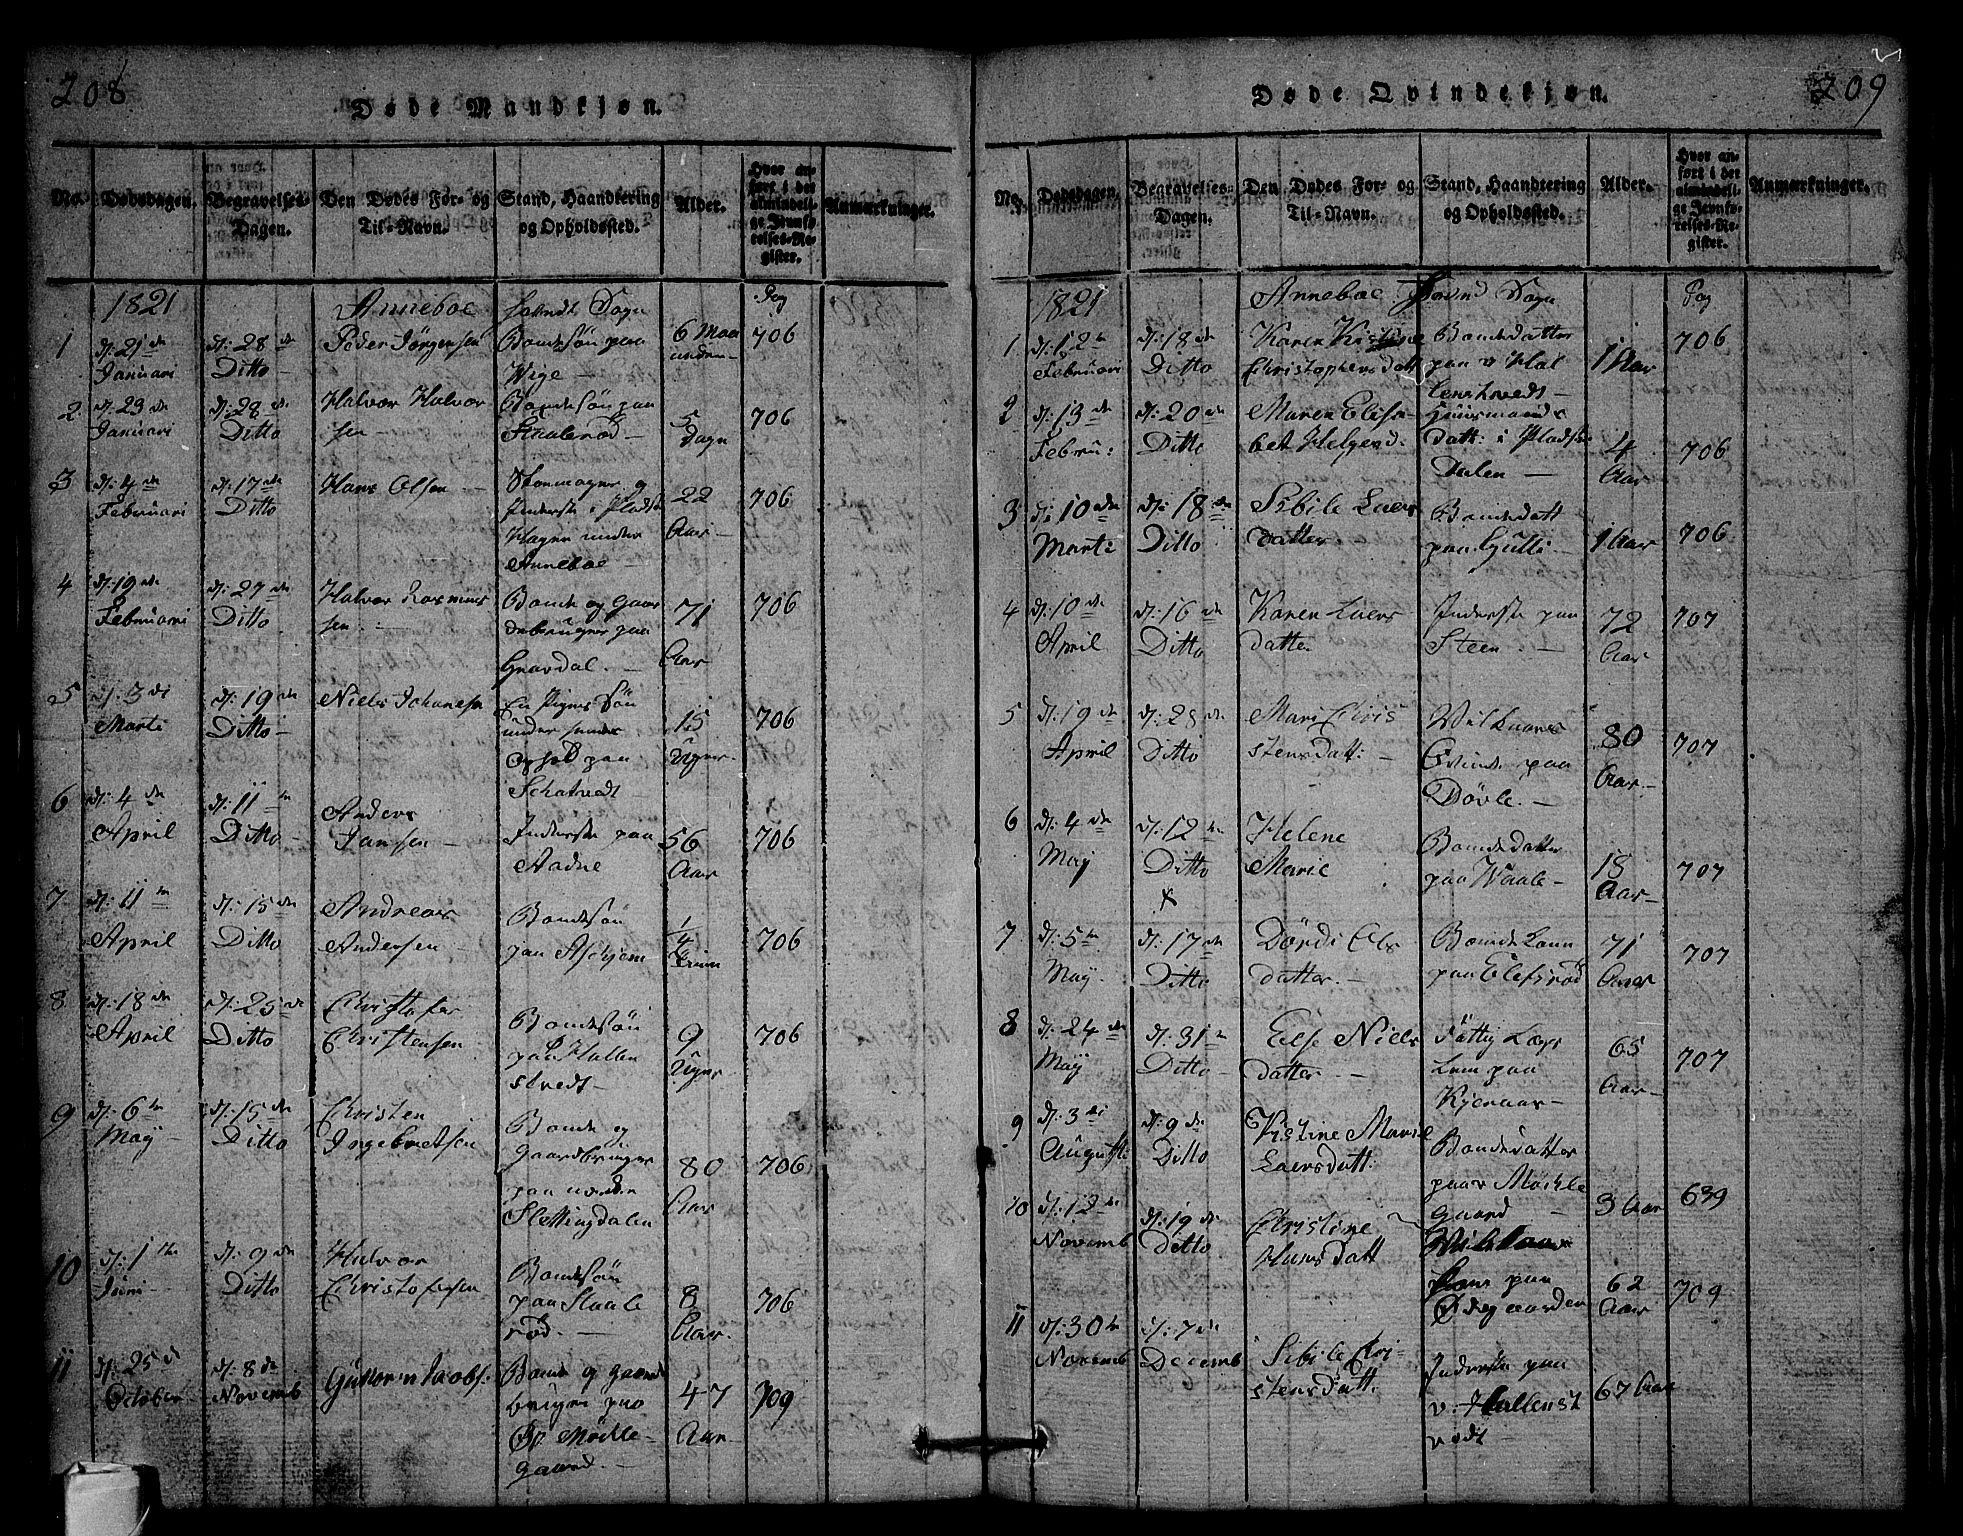 208
Døde Mandkjøn.
No. Dødsdagen. Begravelses-Dagen. Den Dødes For- og Til-Navn. Stand, Haandtering og Opholdssted. Alder. Hvor anført i det almindelige Jevnførelses-Register. Anmærkninger.
1821 Anneboe Sogn Pag
1 d: 21 de Januari d: 28 de Ditto Peder Jørgensen Bondesøn paa Wige 6 Maa 706
2 d: 23 de Januari d: 28 de Ditto Halvor Halvorsen Bondesøn paa 5 Dage 706
3 d: 4 de Februari d: 17 de Ditto Hans Olsen Inderste i Pladsen Hagen under Anneboe 22 Aar 706
4 d: 19 de Februari d: 27 de Ditto Halvor Rasmussen Bonde og Gaardebruger paa Gravdal 71 Aar 706
5 d: 3 di Marti d: 19 de Ditto Niels Johansen En Piges Søn under hendes Ophold paa 15 Uger 706
6 d: 4 de April d: 11 te Ditto Anders Jansen Inderste paa Aadne 56 Aar 706
7 d: 11 te April d: 15 de Ditto Andreas Andersen Bondesøn paa Aschjem 1/4 706
8 d: 18 de April d: 25 de Ditto Christofer Christensen Bondesøn paa Hallenstvedt 9 Uger 706
9 d: 6 te May d: 15 de Ditto Christen Ingebretsen Bonde og Gaardbruger paa nordre Slettingdalen 80 Aar 706
10 d: 1 ste Juni d: 9 de Ditto Halvor Christofersen Bondesøn paa Skaalerød 8 Aar 706
11 d: 25 de October d: 8 de Novemb Guttorm Jacobs: Bonde og Gaardbruger paa Møklegaard 47 Aar 709
209
Døde Qvindekjøn.
No. Dødsdagen. Begravelses-Dagen. Den Dødes For- og Til-Navn. Stand, Haandtering og Opholdssted. Alder. Hvor anført i det almindelige Jevnførelses-Register. Anmærkninger.
1821 Anneboe Sogn Pag
1 d: 12 te Februari d: 18 de Ditto Karen Kirstine Christophersdatt Bondedatter paa v Hallenstvedt 1 Aar 706
2 d: 13 de Febru: d: 20 de Ditto Maren Elisabet Helgesd. Huusmands Datt: i Pladsen Dalen 4 Aar 706
3 d: 10 de Marti d: 18 de Ditto Sibile Laersdatter Bondedatt paa 1 Aar 706
4 d: 10 de April d: 16 de Ditto Karen Laersdatter Inderste paa Steen 72 Aar 707
5 d: 19 de April d: 25 de Ditto Mari Christensdatt: Qvinde paa Døvle 80 Aar 707
6 d: 4 de May d: 12 te Ditto Helene Marie Bondedatter paa Waale 18 Aar 707
7 d: 5 te May d: 17 de Ditto Dørdi Olsdatter Bondekone paa Elefsrød 71 Aar 707
8 d: 24 de May d: 31 te Ditto Else Nielsdatter Fattig Lægs Lem paa Kjenaas 65 Aar 707
9 d: 3 di Augusti d: 9 de Ditto Kistine Marie Laersdatt: Bondedatter paa Møchlegaard 3 Aar 639
10 d: 12 te Novemb d: 19 de Ditto Christine Hansdatt paa Ødegaarden 62 Aar 709
11 d: 30 te Novemb d: 7 de Decemb Sibile Christensdatt: Inderste paa v: Hallenstvedt 67 Aar